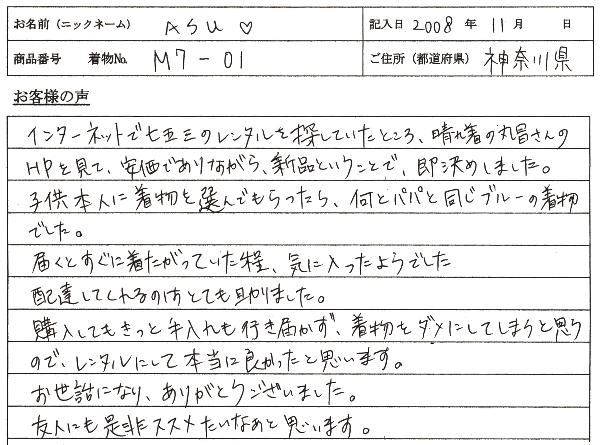 お名前（ニックネーム） ASU ♡ 記入日 2008 年 11 月 日
商品番号 着物No. M7-01 ご住所（都道府県） 神奈川県
お客様の声
インターネットで七五三のレンタルを探していたところ、晴れ着の丸昌さんの
HPを見て、安価でありながら、新品ということで、即決めしました。
子供本人に着物を選んでもらったら、何とパパと同じブルーの着物
でした。
届くとすぐに着たがっていた程、気に入ったようでした
配達してくれるのはとても助かりました。
購入してもきっと手入れも行き届かず、着物をダメにしてしまうと思う
ので、レンタルにして本当に良かったと思います。
お世話になり、ありがとうございました。
友人にも是非ススメたいなあと思います。